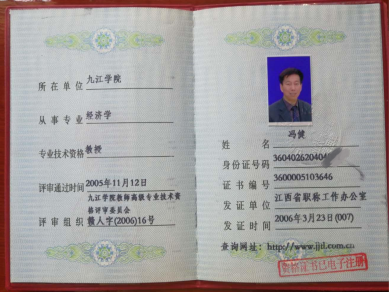 所在单位 九江学院
从事专业 经济学
专业技术资格 教授
评审通过时间 2005年11月12日
九江学院教师高级专业技术资
格评审委员会
评审组织 赣人字(2006)16号
姓名 冯健
身份证号码 360402620404
证书编号 3600005103646
发证单位 江西省职称工作办公室
发证时间 2006年3月23日(007)
查询网址: http://www.jjtl.com.cn